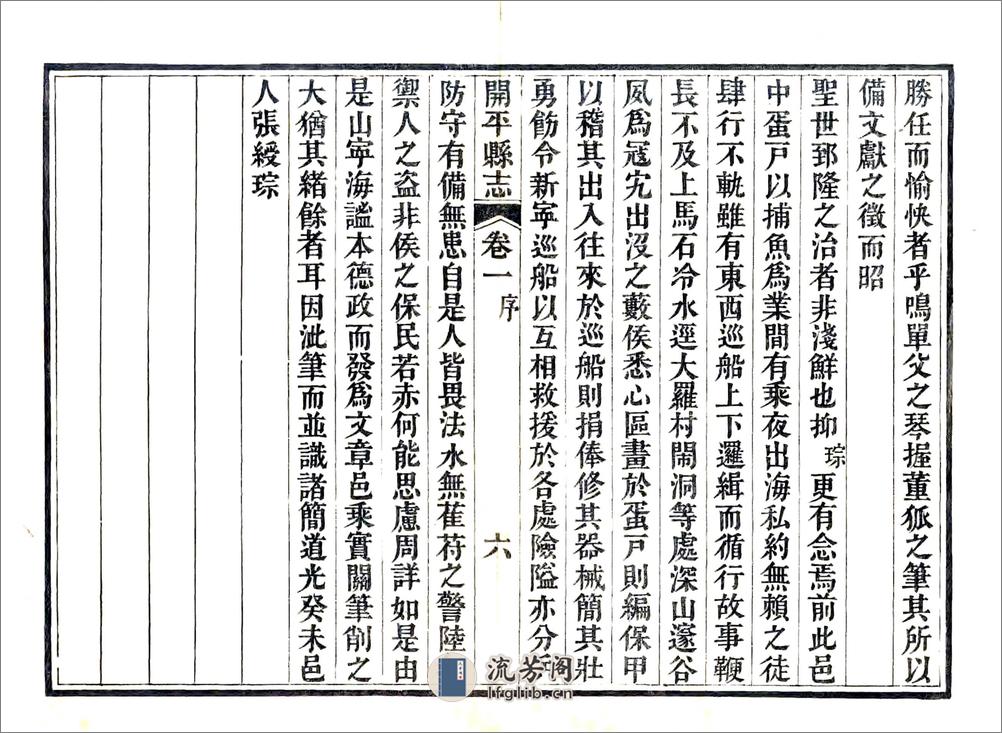 勝任而愉快者乎鳴單父之琴握董狐之筆其所以
備文獻之徵而昭
聖世郅隆之治者非淺鮮也抑琮更有念焉前此邑
中蛋戸以捕魚爲業間有乘夜出海私約無賴之徒
肆行不軌雖有東西巡船上下邏緝而循行故事鞭
長不及上馬石冷水逕大羅村鬧洞等處深山邃谷
夙爲冦宄出沒之藪侯悉心區畫於蛋戸則編保甲
以稽其出入往來於巡船則捐俸修其器械簡其壯
勇飭令新寧巡船以互相救援於各處險隘亦分
開平縣志 卷一 序 六
防守有備無患自是人皆畏法水無萑苻之警陸
禦人之盗非侯之保民若赤何能思慮周詳如是由
是山寧海謐本德政而發爲文章邑乘實關筆削之
大猶其緒餘者耳因泚筆而並識諸簡道光癸未邑
人張綬琮
流芳阁
lfglib.cn